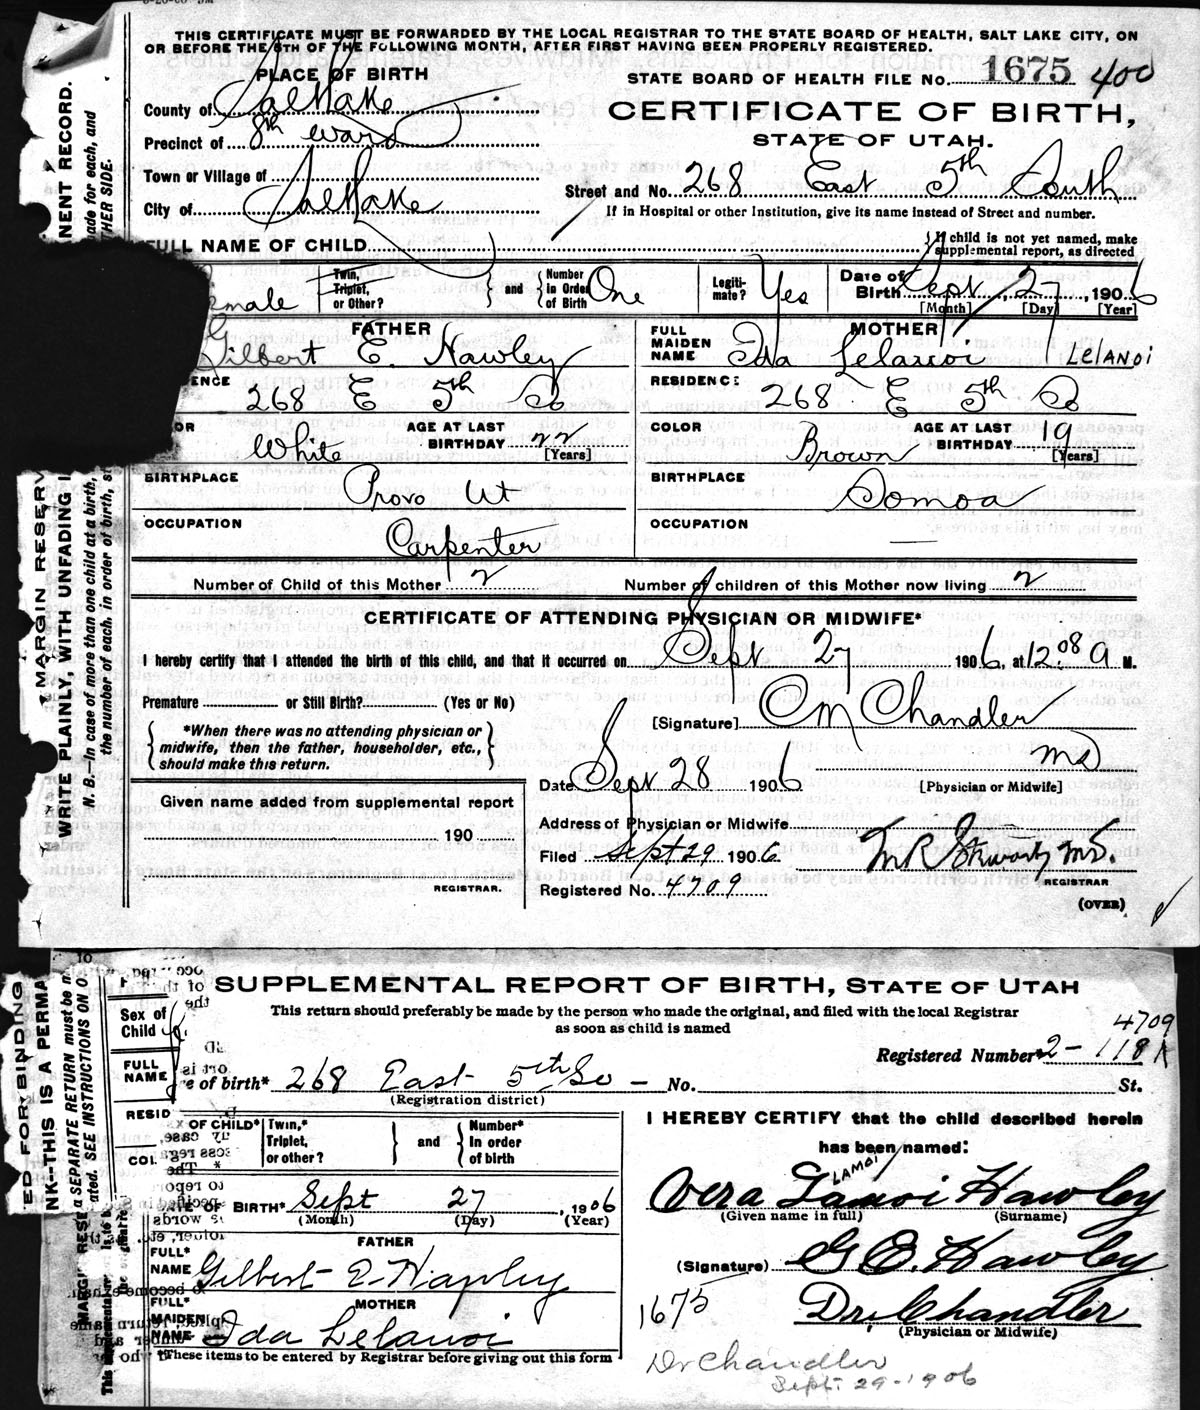 THIS CERTIFICATE MUST BE FORWARDED BY THE LOCAL REGISTRAR TO THE STATE BOARD OF HEALTH, SALT LAKE CITY, ON
OR BEFORE THE 5TH OF THE FOLLOWING MONTH, AFTER FIRST HAVING BEEN PROPERLY REGISTERED.
PLACE OF BIRTH
STATE BOARD OF HEALTH FILE No. 1675 400
County of Salt Lake
CERTIFICATE OF BIRTH,
Precinct of 8th ward
STATE OF UTAH.
Town or Village of
Street and No. 268 East 5th South
City of Salt Lake
If in Hospital or other Institution, give its name instead of Street and number.
FULL NAME OF CHILD
If child is not yet named, make
supplemental report, as directed
emale
Twin, Triplet, or Other?
and
Number in Order of Birth One
Legiti-mate? Yes
Date of Birth Sept, 27, 1906
[Month] [Day] [Year]
FATHER
Gilbert E. Hawley
FULL MAIDEN NAME
MOTHER
Ida Lelanoi LELANOI
ENCE
268 E 5th So
RESIDENCE
268 E 5th So
OR
White
AGE AT LAST BIRTHDAY 22
[Years]
COLOR
Brown
AGE AT LAST BIRTHDAY 19
[Years]
BIRTHPLACE
Provo Ut
BIRTHPLACE
Somoa
OCCUPATION
Carpenter
OCCUPATION
—
Number of Child of this Mother 2
Number of children of this Mother now living 2
CERTIFICATE OF ATTENDING PHYSICIAN OR MIDWIFE*
I hereby certify that I attended the birth of this child, and that it occurred on Sept 27 1906, at 12.08 a M.
Premature or Still Birth? (Yes or No)
[Signature] CM Chandler
*When there was no attending physician or
midwife, then the father, householder, etc.,
should make this return.
MD
Date Sept 28 1906
[Physician or Midwife]
Given name added from supplemental report
190
Address of Physician or Midwife
Filed Sept 29 1906
M.D.
REGISTRAR.
Registered No. 4709
REGISTRAR
(OVER)
MARGIN RESERV
WRITE PLAINLY, WITH UNFADING I
N. B.—In case of more than one child at a birth,
the number of each, in order of birth, st
NENT RECORD.
made for each, and
THER SIDE.
SUPPLEMENTAL REPORT OF BIRTH, STATE OF UTAH
This return should preferably be made by the person who made the original, and filed with the local Registrar
as soon as child is named
4709
Registered Number* 2-118A
Sex of
Child
FULL
NAME
e of birth* 268 East 5th So — No. St.
(Registration district)
RESID
COL
X OF CHILD*
Twin,* Triplet, or other?
and
Number* In order of birth
I HEREBY CERTIFY that the child described herein
has been named:
LAMOI
Vera Lanoi Hawley
(Given name in full) (Surname)
OF BIRTH* Sept 27, 1906
(Month) (Day) (Year)
FATHER
FULL* NAME Gilbert E. Hawley
(Signature) G E. Hawley
MOTHER
FULL* MAIDEN NAME Ida Lelanoi
1675
Dr. Chandler
(Physician or Midwife)
*These items to be entered by Registrar before giving out this form
Dr Chandler
Sept. 29-1906
ED FOR BINDING
NK--THIS IS A PERMA
a SEPARATE RETURN must be m
ated. SEE INSTRUCTIONS ON O